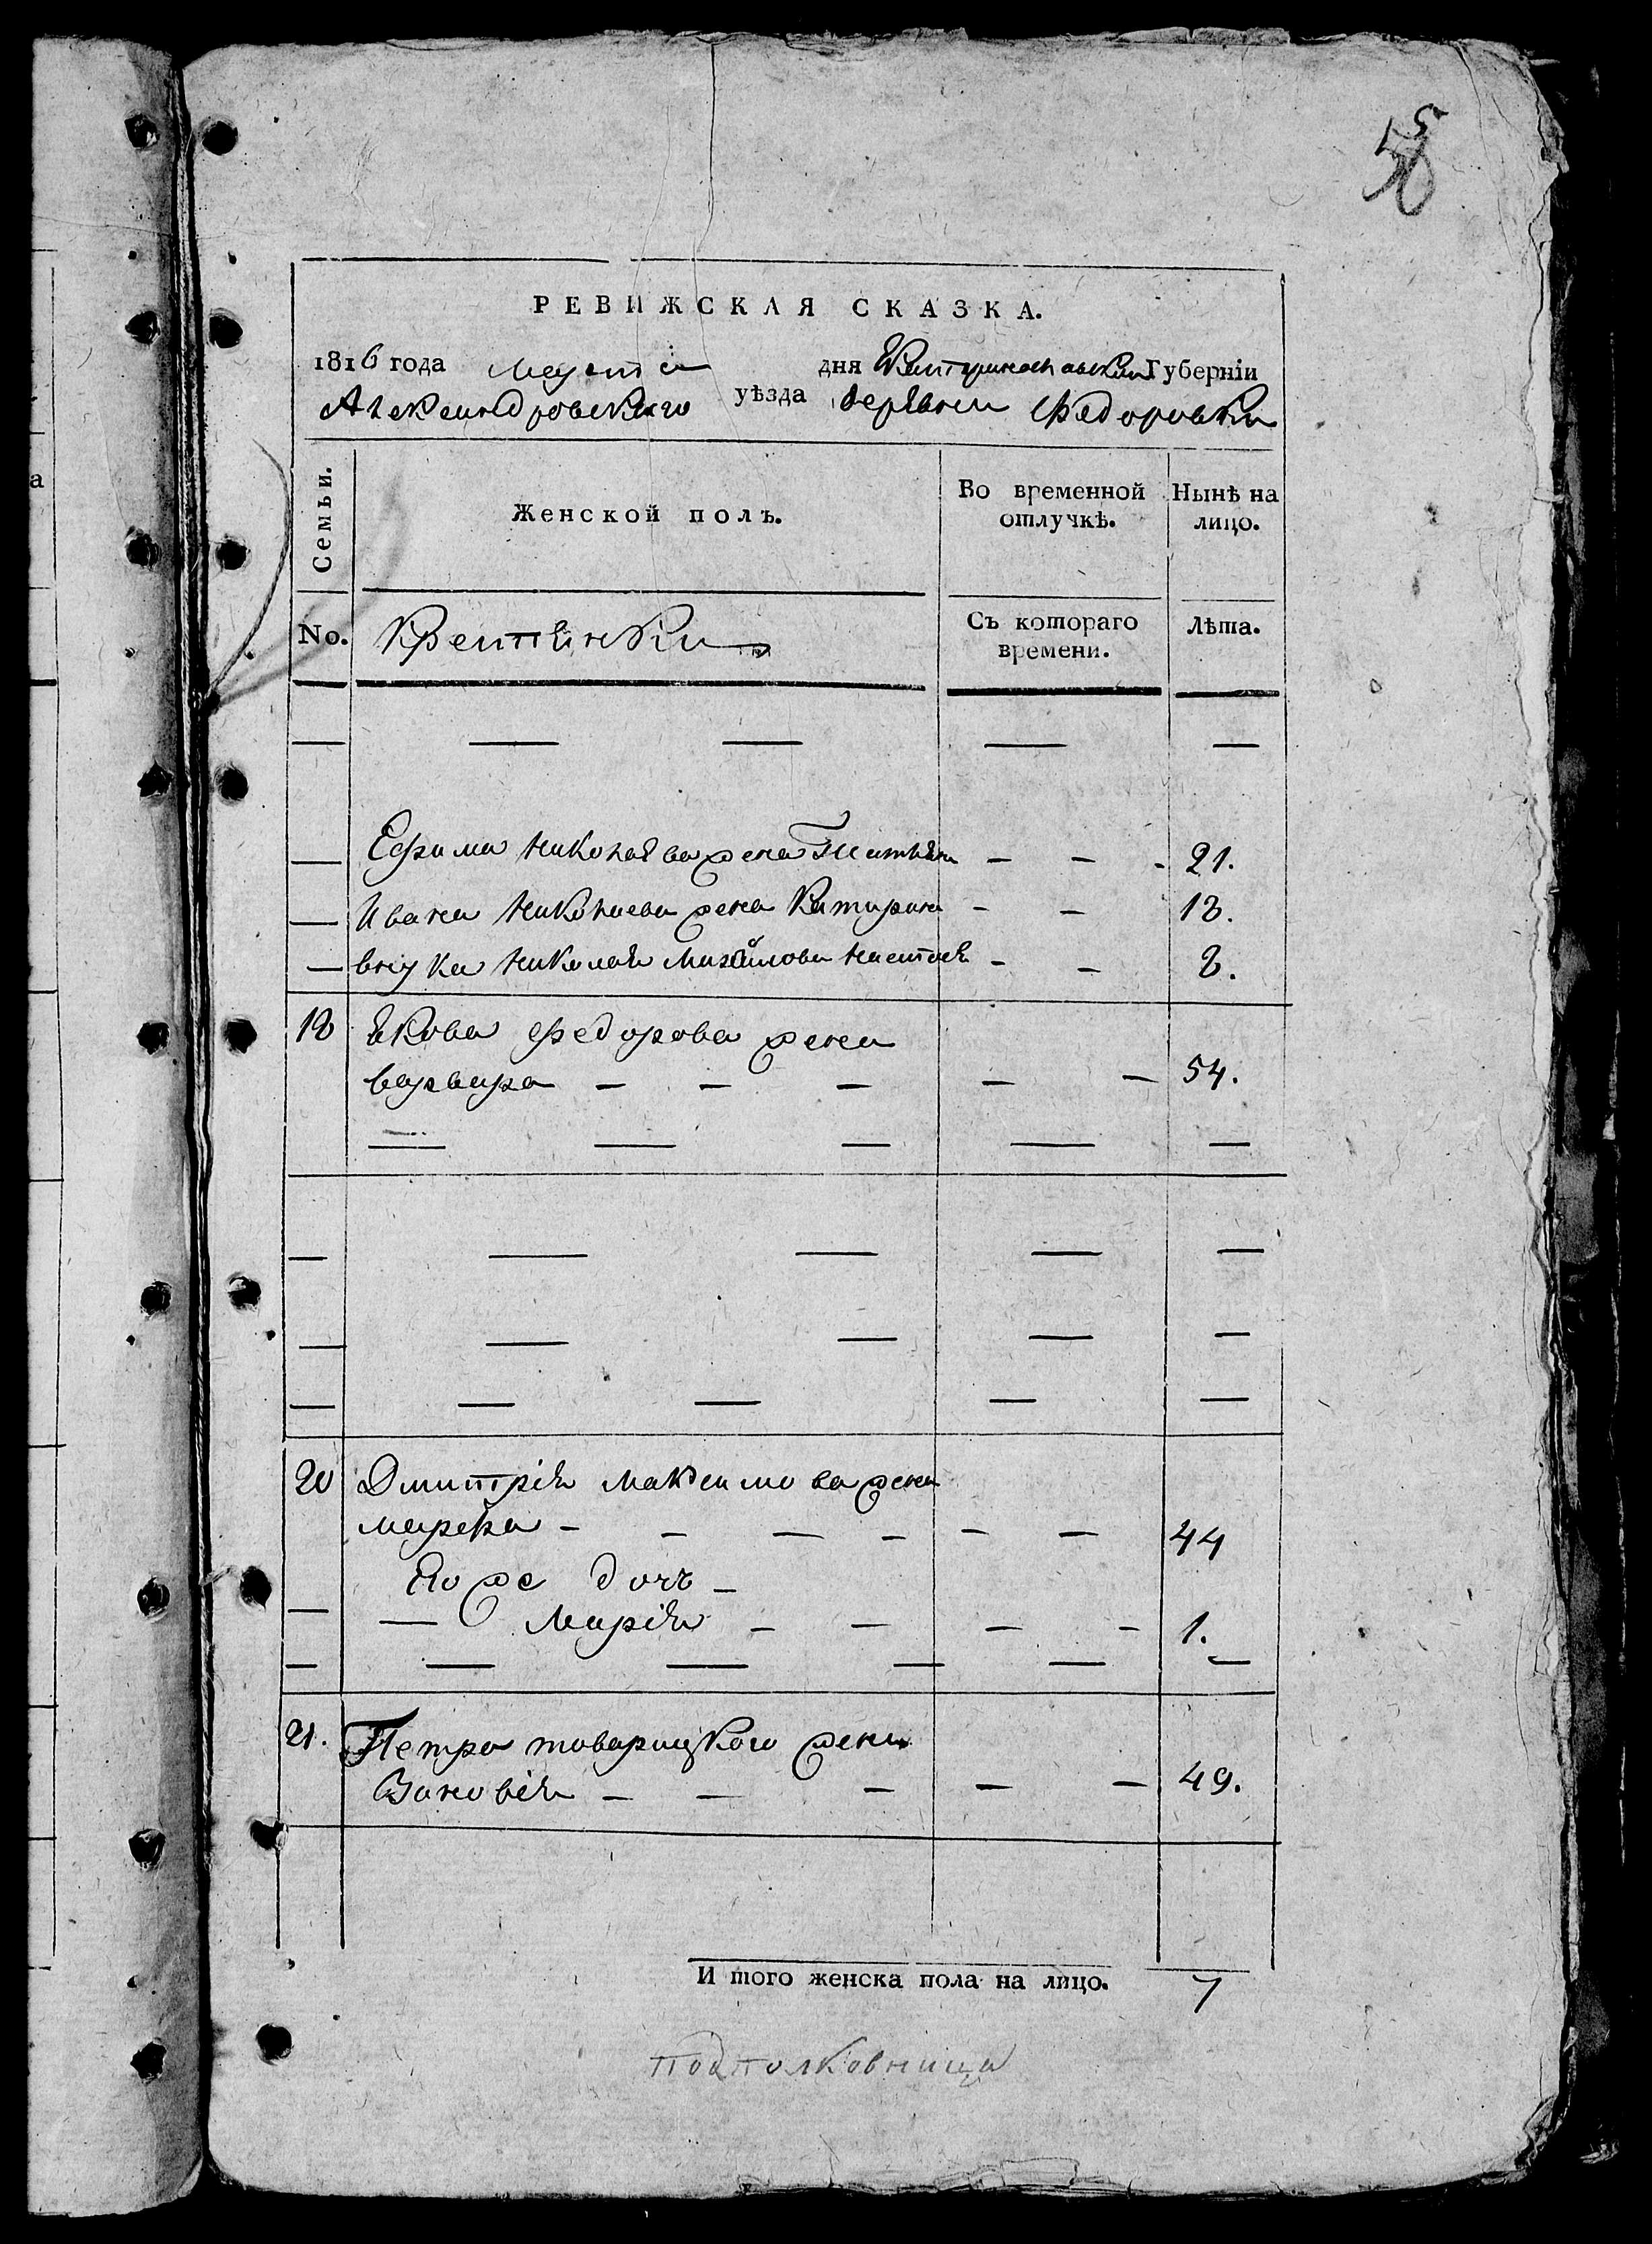 а
РЕВИЖСКАЯ СКАЗКА.
1816 года марта дня Екатеринославской Губернiи
Александровского уѣзда деревни Федоровки
Семьи.
Женской полъ.
Во временной отлучкѣ.
Нынѣ на лицо.
No.
Съ котораго времени.
Лѣта.
— — — — —
— Ефима Николаева жена Татьяна — — - 21.
— Ивана Николаева жена Катирина — — 18.
— внука Николая Михайлова Настасья — — 8.
18 Якова Федорова жена
варвара — — — — — 54.
— — — — —
— — — — —
— — — — —
— — — — —
20 Дмитрія максимова жена
марфа — — — — — — 44
Его же дочь —
— — Марія — — — — 1.
— — — — — —
21. Петра товарицкого жена
Зиновія — — — — — 49.
И того женска пола на лицо. 7
подполковница